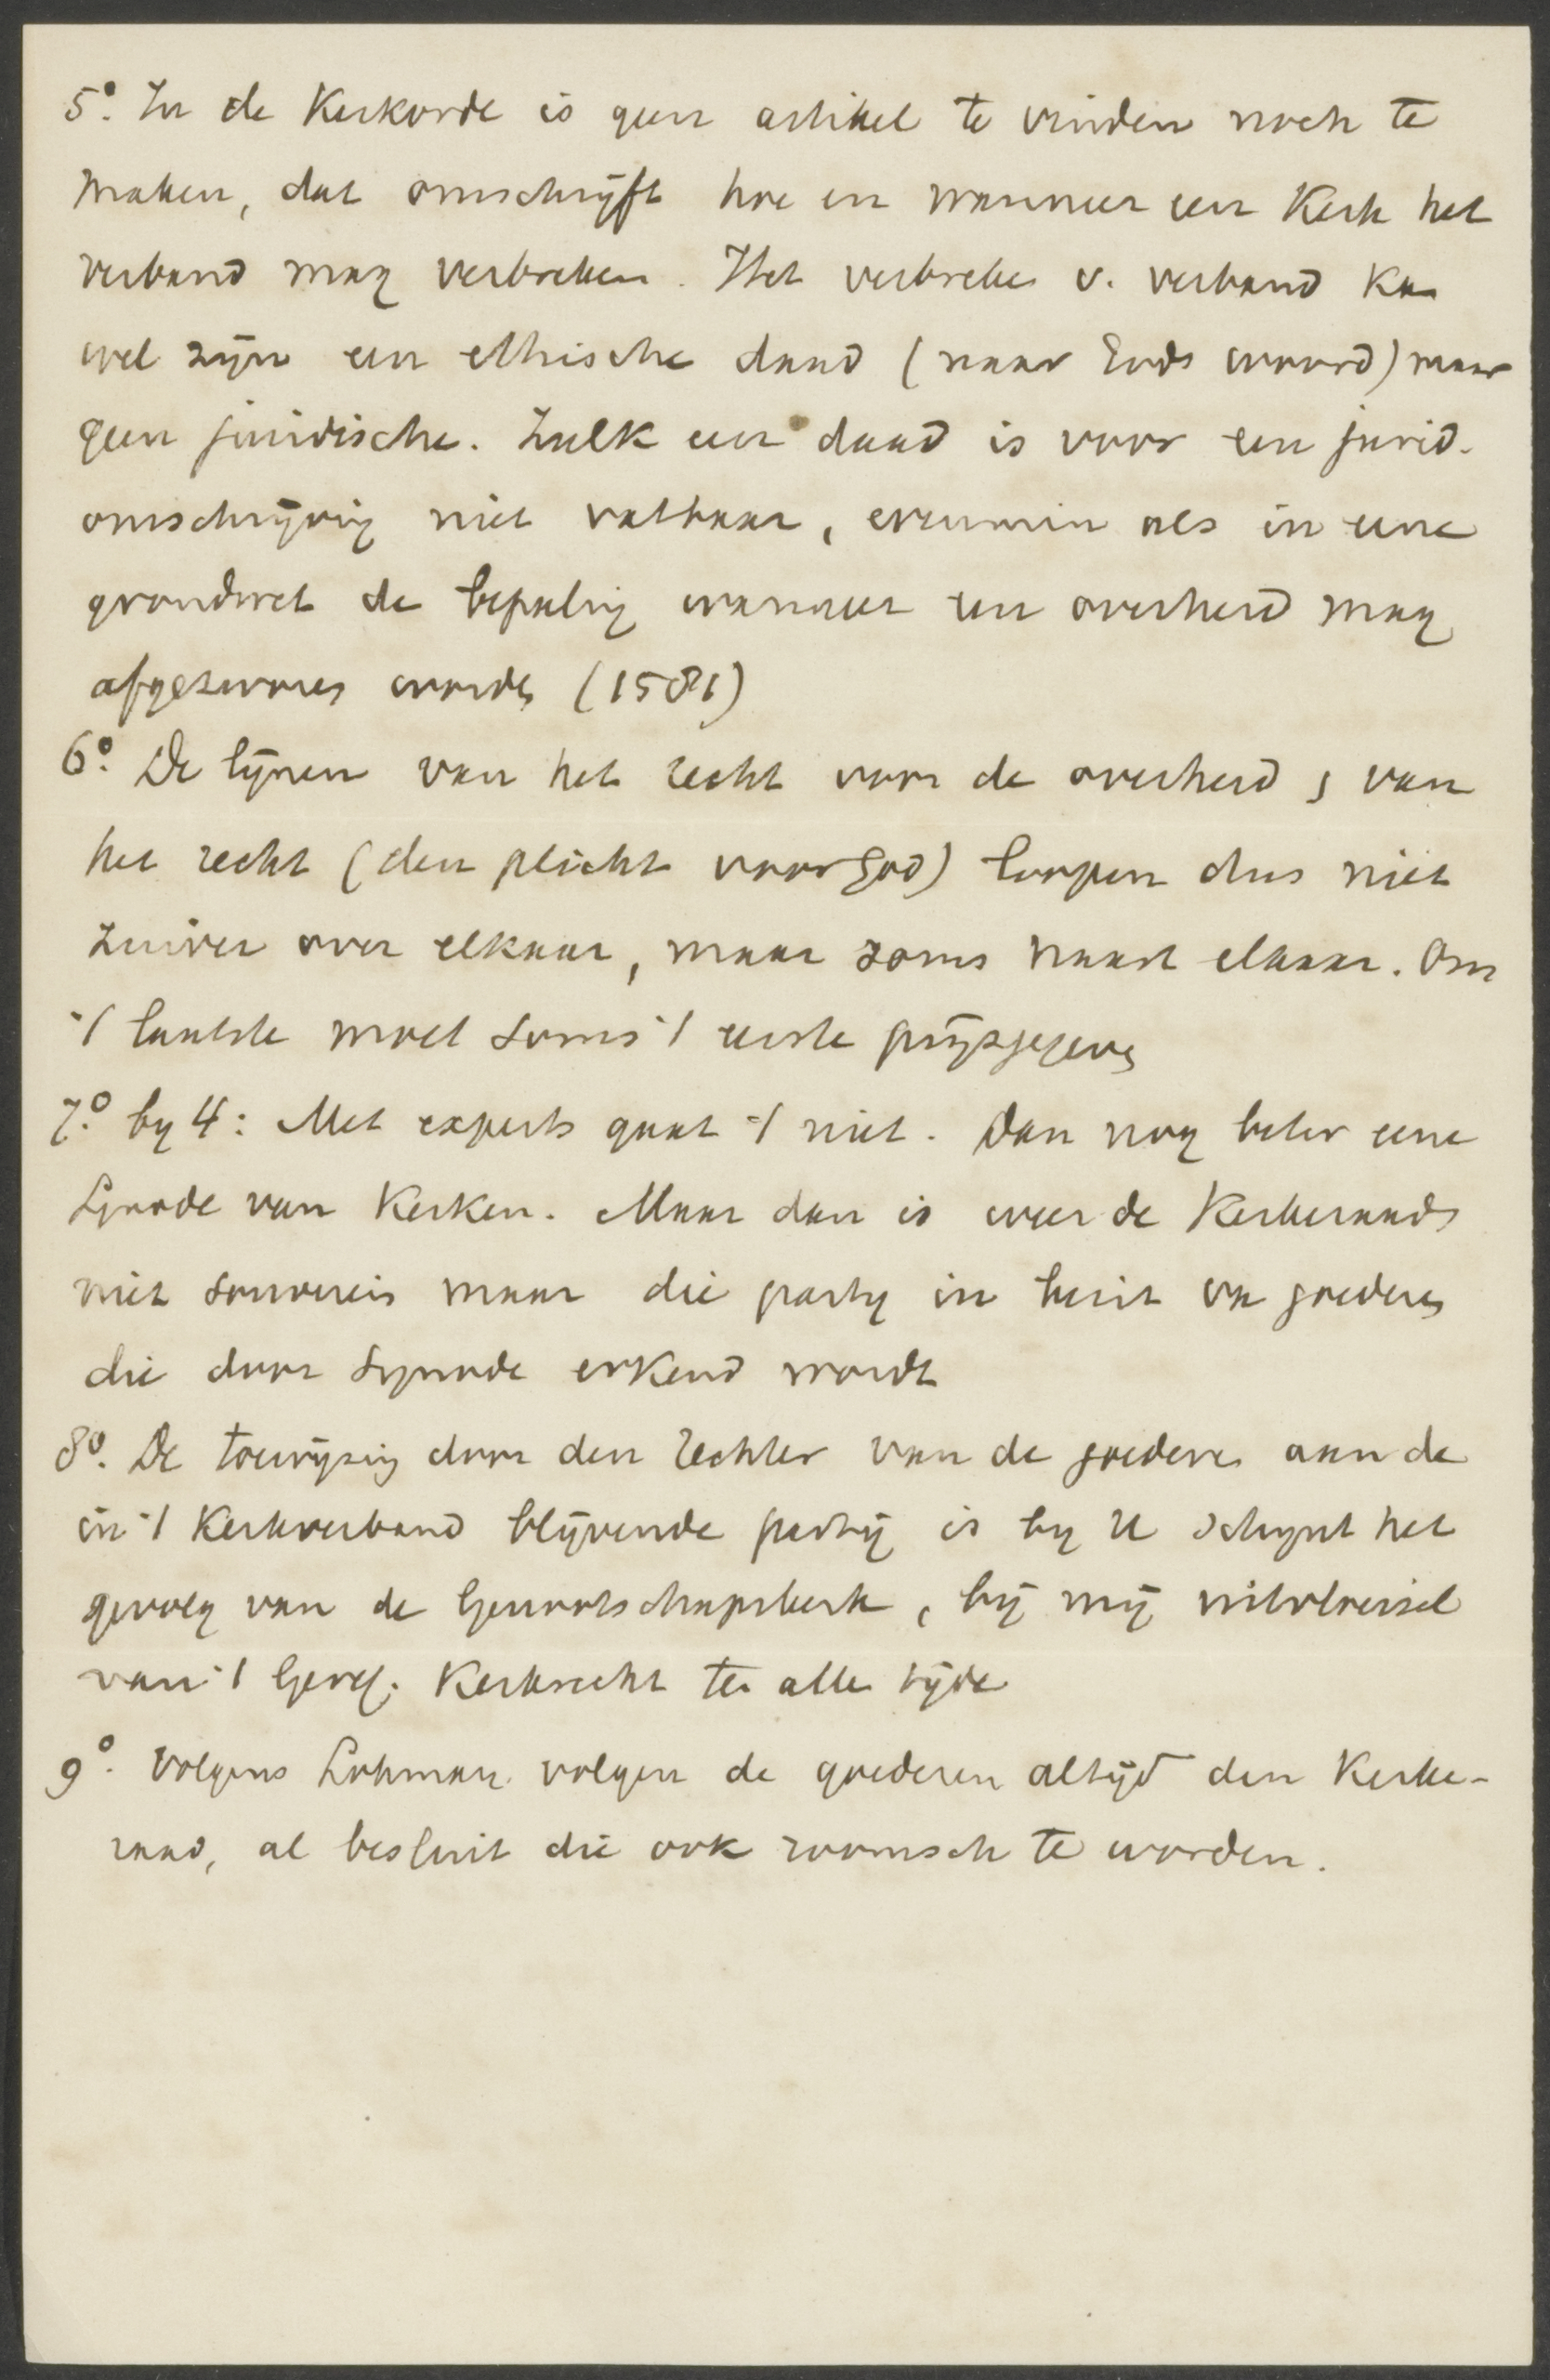 5º. In de Kerkorde is geen artikel te vinden noch te
maken, dat omschrijft hoe en wanneer een Kerk het
verband mag verbreken. Het verbreken v. verband kan
wel zijn een ethische daad (naar Gods woord) maar
geen juridische. Zulk een daad is voor een jurid.
omschrijving niet vatbaar, evenmin als in eene
grondwet de bepaling wanneer een overheid mag
afgezworen worden (1581)
6º. De lijnen van het recht voor de overheid, van
het recht (den plicht voor God) loopen dus niet
zuiver over elkaar, maar soms naast elkaar. Om
't laatste moet soms 't eerste prijsgegeven
7º. by 4: Met experts gaat 't niet. Dan nog beter eene
Synode van Kerken. Maar dan is weer de Kerkeraads
niet souverein maar die party in bezit van goederen
die door Synode erkend wordt
8º. De toewijzing door den rechter van de goederen aan de
in 't Kerkverband blijvende partij is by U schynt het
gevolg van de Genootschapskerk, bij mij uitvloeisel
van 't Geref. Kerkrecht ten alle tijde
9º. Volgens Lohman volgen de goederen altijd den Kerke-
raad, al besluit die ook roomsch te worden.